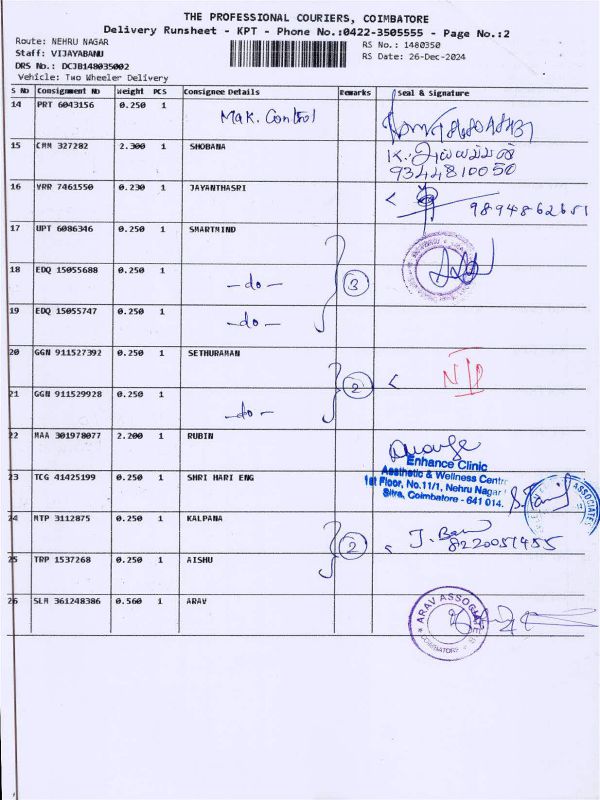 THE PROFESSIONAL COURIERS, COIMBATORE
Delivery Runsheet - KPT - Phone No.:0422-3505555 - Page No.:2
Route: NEHRU NAGAR
RS No.: 1480350
Staff: VIJAYABANU
RS Date: 26-Dec-2024
DRS No.: DCJB148035002
Vehicle: Two Wheeler Delivery
S No Consignment No Weight PCS Consignee Details Remarks Seal & Signature
14 PRT 6043156 0.250 1 Mak. Control
15 CMM 327282 2.300 1 SHOBANA
9344810050
16 VRR 7461550 0.230 1 JAYANTHASRI 9894862651
17 UPT 6086346 0.250 1 SMARTMIND
18 EDQ 15055688 0.250 1 -do- 3
19 EDQ 15055747 0.250 1 -do-
20 GGN 911527392 0.250 1 SETHURAMAN 2
21 GGN 911529928 0.250 1 -do-
22 MAA 301978077 2.200 1 RUBIN
Enhance Clinic
Aesthetic & Wellness Centre
1st Floor, No.11/1, Nehru Nagar
Sitra, Coimbatore - 641 014.
23 TCG 41425199 0.250 1 SHRI HARI ENG
24 MTP 3112875 0.250 1 KALPANA 2
8220051455
25 TRP 1537268 0.250 1 AISHU
26 SLM 361248386 0.560 1 ARAV
ARAV ASSOCIATES
COIMBATORE